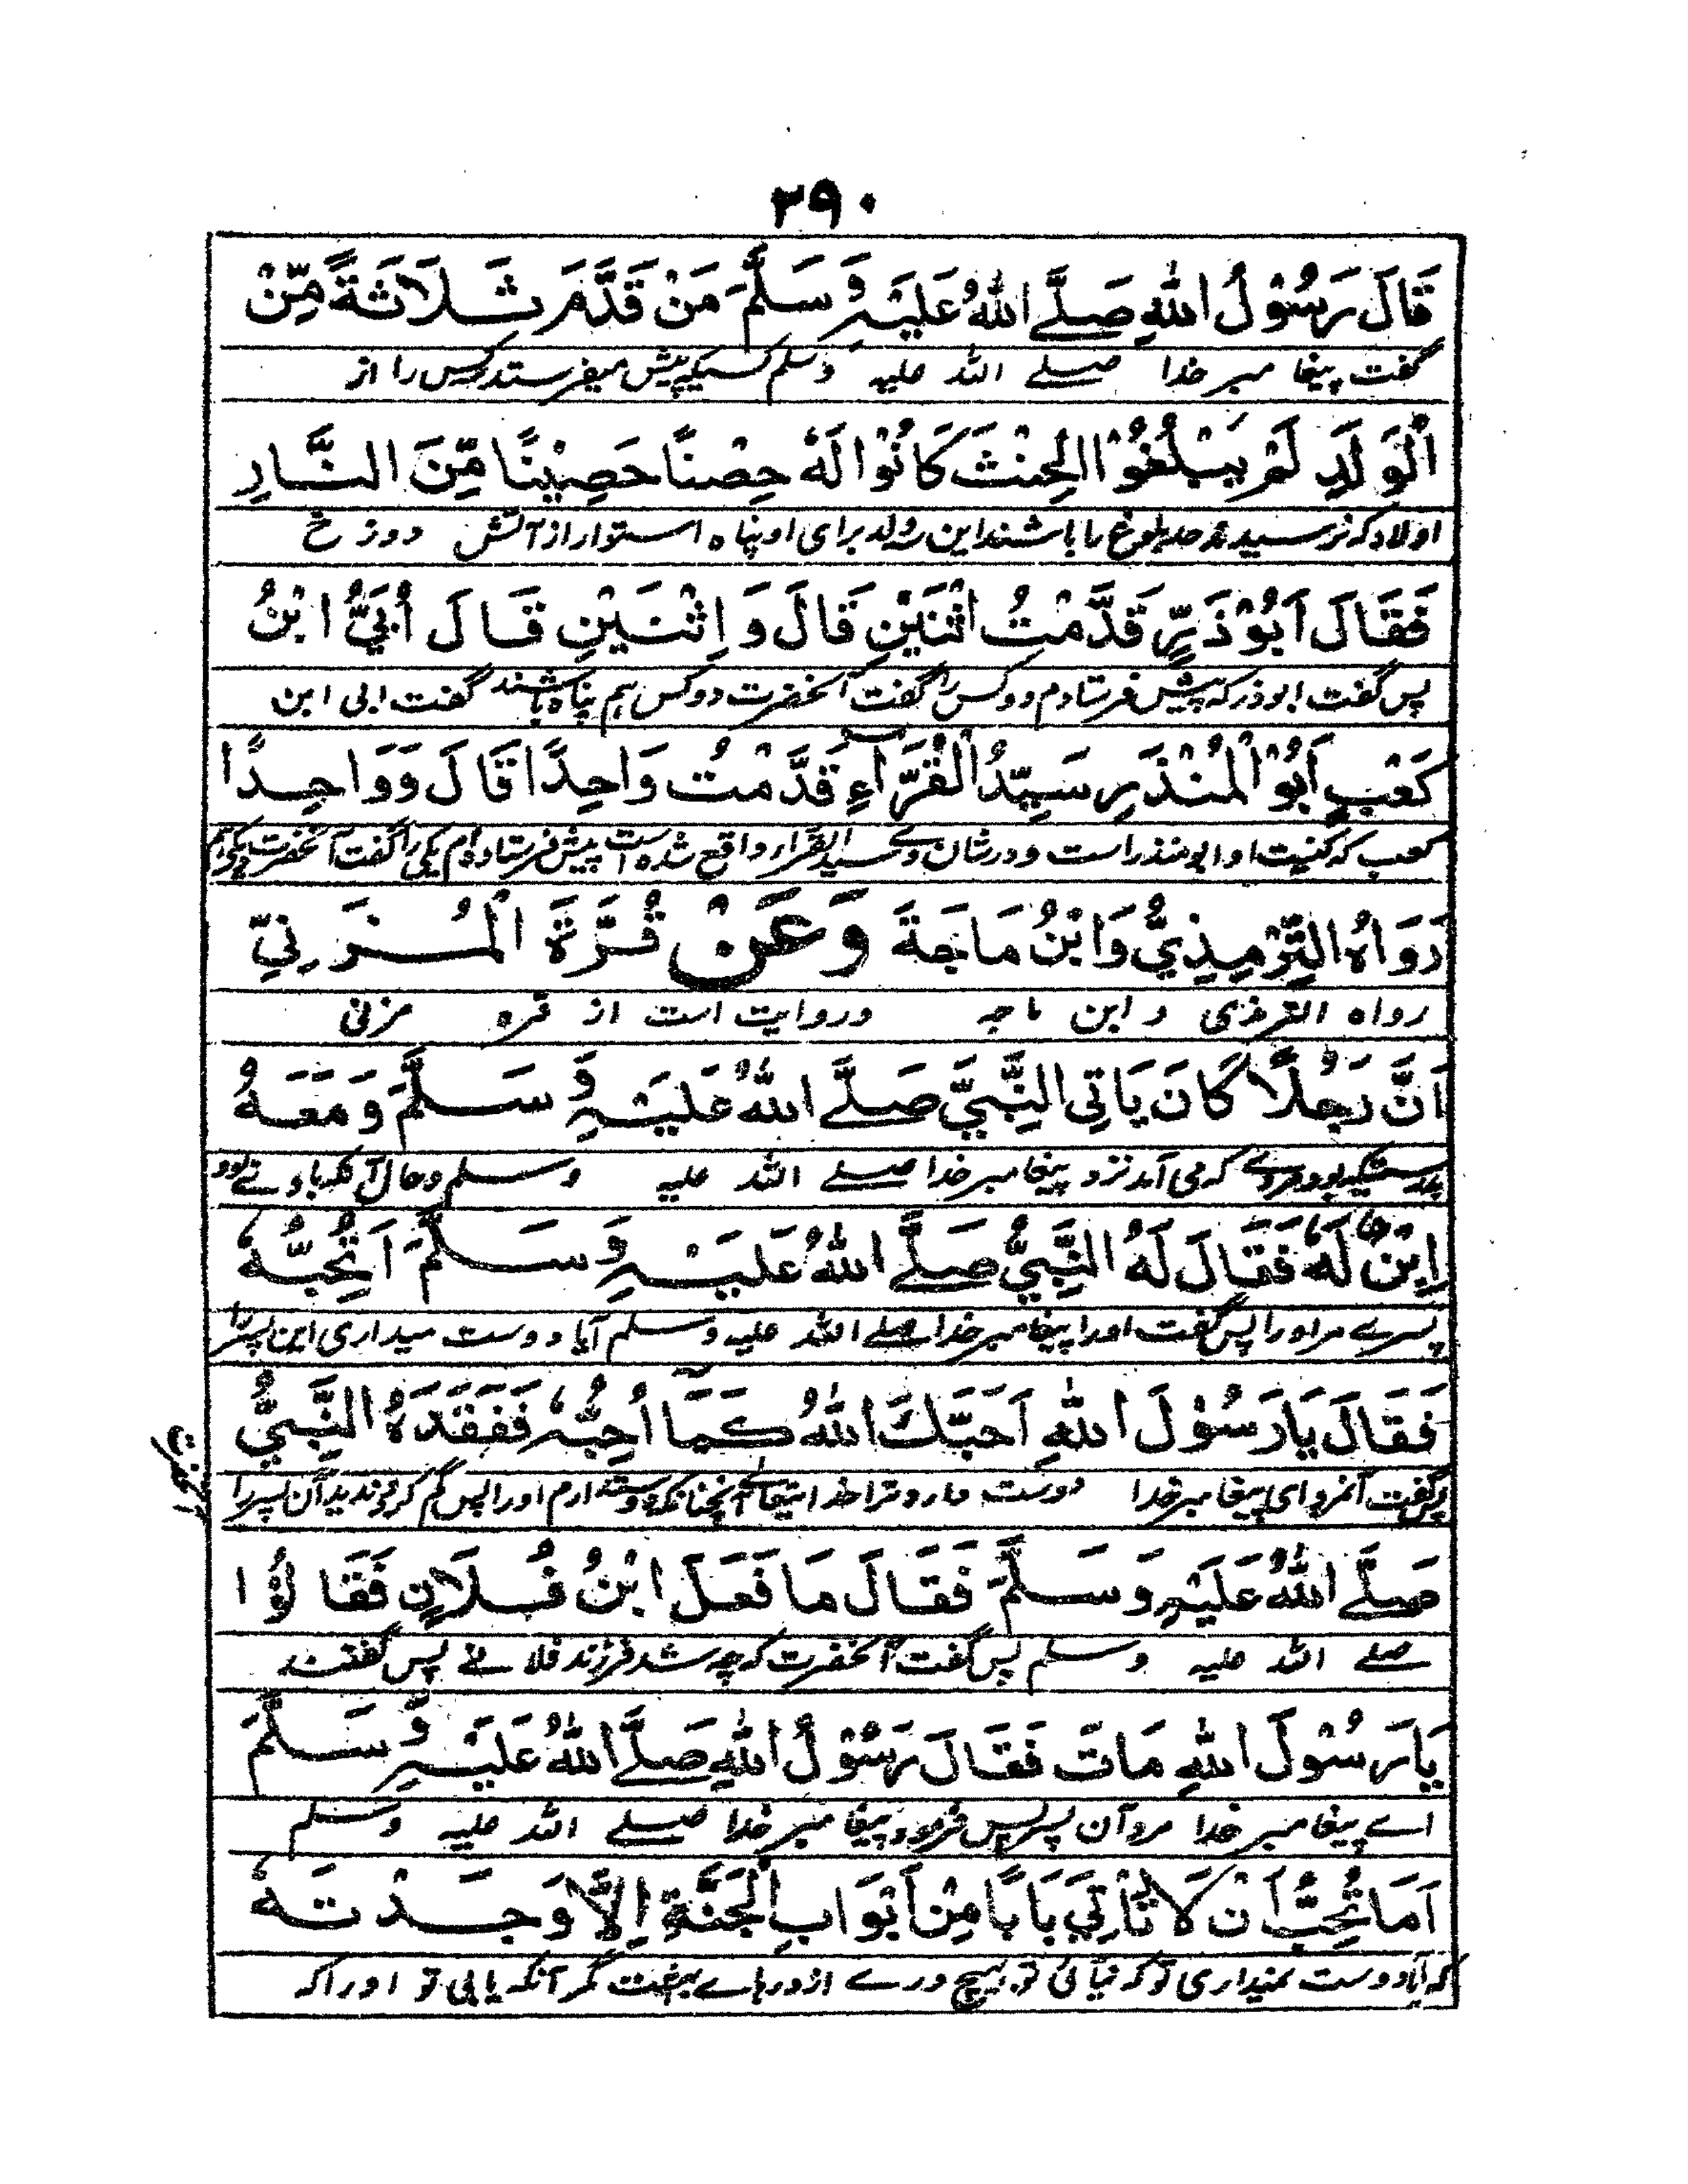 ۳۹۰
قَالَ رَسُوْلُ اللهِ صَلَّے اللهُ عَلَیْہِ وَسَلَّمَ مَنْ قَدَّمَ ثَلَاثَةً مِّنْ
گفت پیغامبر خدا صلے اللہ علیہ وسلم کسیکہ پیش میفرستد کس را از
الْوَلَدِ لَمْ یَبْلُغُوْا الْحِنْثَ کَانُوْا لَهٗ حِصْنًا حَصِیْنًا مِّنَ النَّارِ
اولاد کہ نرسیدند حد بلوغ را باشند این ولد برای او پناہ استوار از آتش دوزخ
فَقَالَ اَبُوْ ذَرٍّ قَدَّمْتُ اثْنَیْنِ قَالَ وَ اِثْنَیْنِ قَالَ اُبَیُّ ابْنُ
پس گفت ابوذر کہ پیش فرستادم دوکس را گفت آنحضرت دوکس ہم پناہ باشند گفت ابی ابن
کَعْبٍ اَبُوْ الْمُنْذَرِ سَیِّدُ الْقُرَّآءِ قَدَّمْتُ وَاحِدًا قَالَ وَوَاحِدًا
کعب کہ کنیت او ابو منذر است و در شان وے سید القرار واقع شدہ است پیش فرستادہ ام یکی را گفت آنحضرت
رَوَاہُ التِّرْمِذِیُّ وَابْنُ مَاجَةَ وَعَنْ قُرَّةَ الْمُزَنِیِّ
رواہ الترمذی و ابن ماجہ و روایت است از قرہ مزنی
اَنَّ رَجُلًا کَانَ یَاتِی النَّبِیَّ صَلَّے اللهُ عَلَیْہِ وَسَلَّمَ وَمَعَهُ
بدرستیکہ بود مردے کہ می آمد نزد پیغامبر خدا صلے اللہ علیہ وسلم و حال آنکہ باوے بود
اِبْنٌ لَهٗ فَقَالَ لَهُ النَّبِیُّ صَلَّے اللهُ عَلَیْہِ وَسَلَّمَ اَتُحِبُّهٗ
پسرے مر اورا پس گفت اورا پیغامبر خدا صلے اللہ علیہ وسلم آیا دوست میداری این پسر را
فَقَالَ یَا رَسُوْلَ اللهِ اَحَبَّكَ اللهُ کَمَآ اُحِبُّهٗ فَفَقَدَہُ النَّبِیُّ
پس گفت آنمرد ای پیغامبر خدا دوست دارد ترا خدا تعالے آنچنانکہ دوست دارم اورا پس گم کرد و ندید آن پسر را
صَلَّے اللهُ عَلَیْہِ وَسَلَّمَ فَقَالَ مَا فَعَلَ ابْنُ فُلَانٍ فَقَالُوْا
صلے اللہ علیہ وسلم پس گفت آنحضرت کہ چہ شد فرزند فلانے پس گفتند
یَا رَسُوْلَ اللهِ مَاتَ فَقَالَ رَسُوْلُ اللهِ صَلَّے اللهُ عَلَیْہِ وَسَلَّمَ
اے پیغامبر خدا مرد آن پسر پس فرمود پیغامبر خدا صلے اللہ علیہ وسلم
اَمَا تُحِبُّ اَنْ لَا تَاْتِیَ بَابًا مِنْ اَبْوَابِ الْجَنَّةِ اِلَّا وَجَدْتَهٗ
کہ آیا دوست نمیداری تو کہ نیائی تو ہیچ درے از درہاے بہشت مگر آنکہ یابی تو اورا کہ